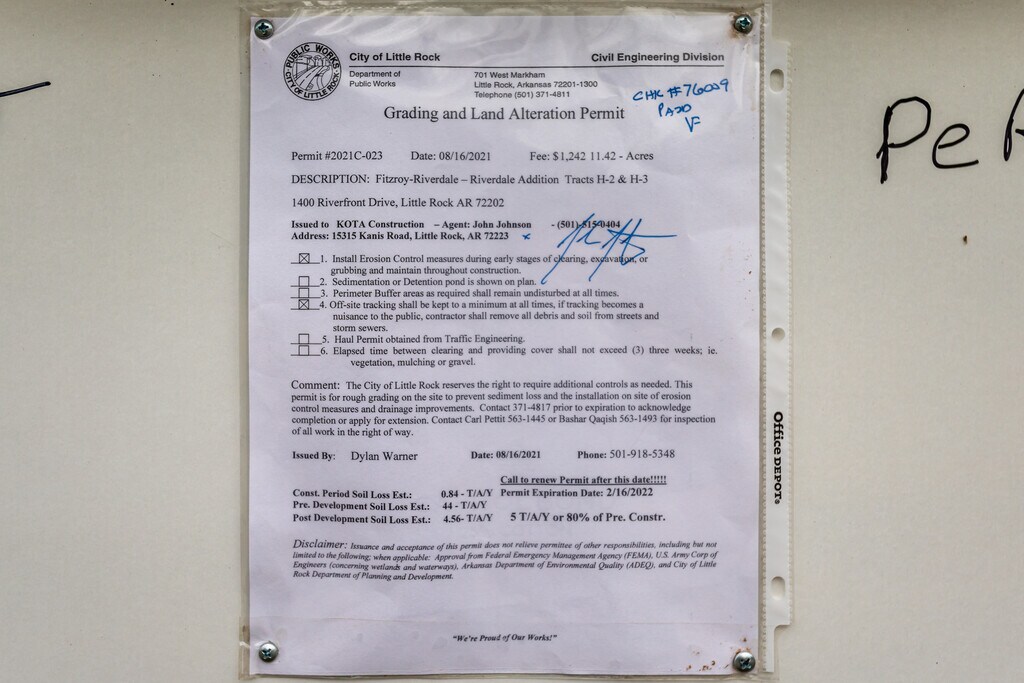 PUBLIC WORKS
CITY OF LITTLE ROCK
City of Little Rock
Civil Engineering Division
Department of
Public Works
701 West Markham
Little Rock, Arkansas 72201-1300
Telephone (501) 371-4811
CHK #76009
PAID
VF
Grading and Land Alteration Permit
Permit #2021C-023 Date: 08/16/2021 Fee: $1,242 11.42 - Acres
DESCRIPTION: Fitzroy-Riverdale – Riverdale Addition Tracts H-2 & H-3
1400 Riverfront Drive, Little Rock AR 72202
Issued to KOTA Construction – Agent: John Johnson - (501)-515-0404
Address: 15315 Kanis Road, Little Rock, AR 72223 x
☒ 1. Install Erosion Control measures during early stages of clearing, excavation, or
grubbing and maintain throughout construction.
☐ 2. Sedimentation or Detention pond is shown on plan.
☐ 3. Perimeter Buffer areas as required shall remain undisturbed at all times.
☒ 4. Off-site tracking shall be kept to a minimum at all times, if tracking becomes a
nuisance to the public, contractor shall remove all debris and soil from streets and
storm sewers.
☐ 5. Haul Permit obtained from Traffic Engineering.
☐ 6. Elapsed time between clearing and providing cover shall not exceed (3) three weeks; ie.
vegetation, mulching or gravel.
Comment: The City of Little Rock reserves the right to require additional controls as needed. This
permit is for rough grading on the site to prevent sediment loss and the installation on site of erosion
control measures and drainage improvements. Contact 371-4817 prior to expiration to acknowledge
completion or apply for extension. Contact Carl Pettit 563-1445 or Bashar Qaqish 563-1493 for inspection
of all work in the right of way.
Issued By: Dylan Warner Date: 08/16/2021 Phone: 501-918-5348
Call to renew Permit after this date!!!!!
Const. Period Soil Loss Est.: 0.84 - T/A/Y Permit Expiration Date: 2/16/2022
Pre. Development Soil Loss Est.: 44 - T/A/Y
Post Development Soil Loss Est.: 4.56- T/A/Y 5 T/A/Y or 80% of Pre. Constr.
Disclaimer: Issuance and acceptance of this permit does not relieve permittee of other responsibilities, including but not
limited to the following; when applicable: Approval from Federal Emergency Management Agency (FEMA), U.S. Army Corp of
Engineers (concerning wetlands and waterways), Arkansas Department of Environmental Quality (ADEQ), and City of Little
Rock Department of Planning and Development.
"We're Proud of Our Works!"
Office DEPOT
Pe